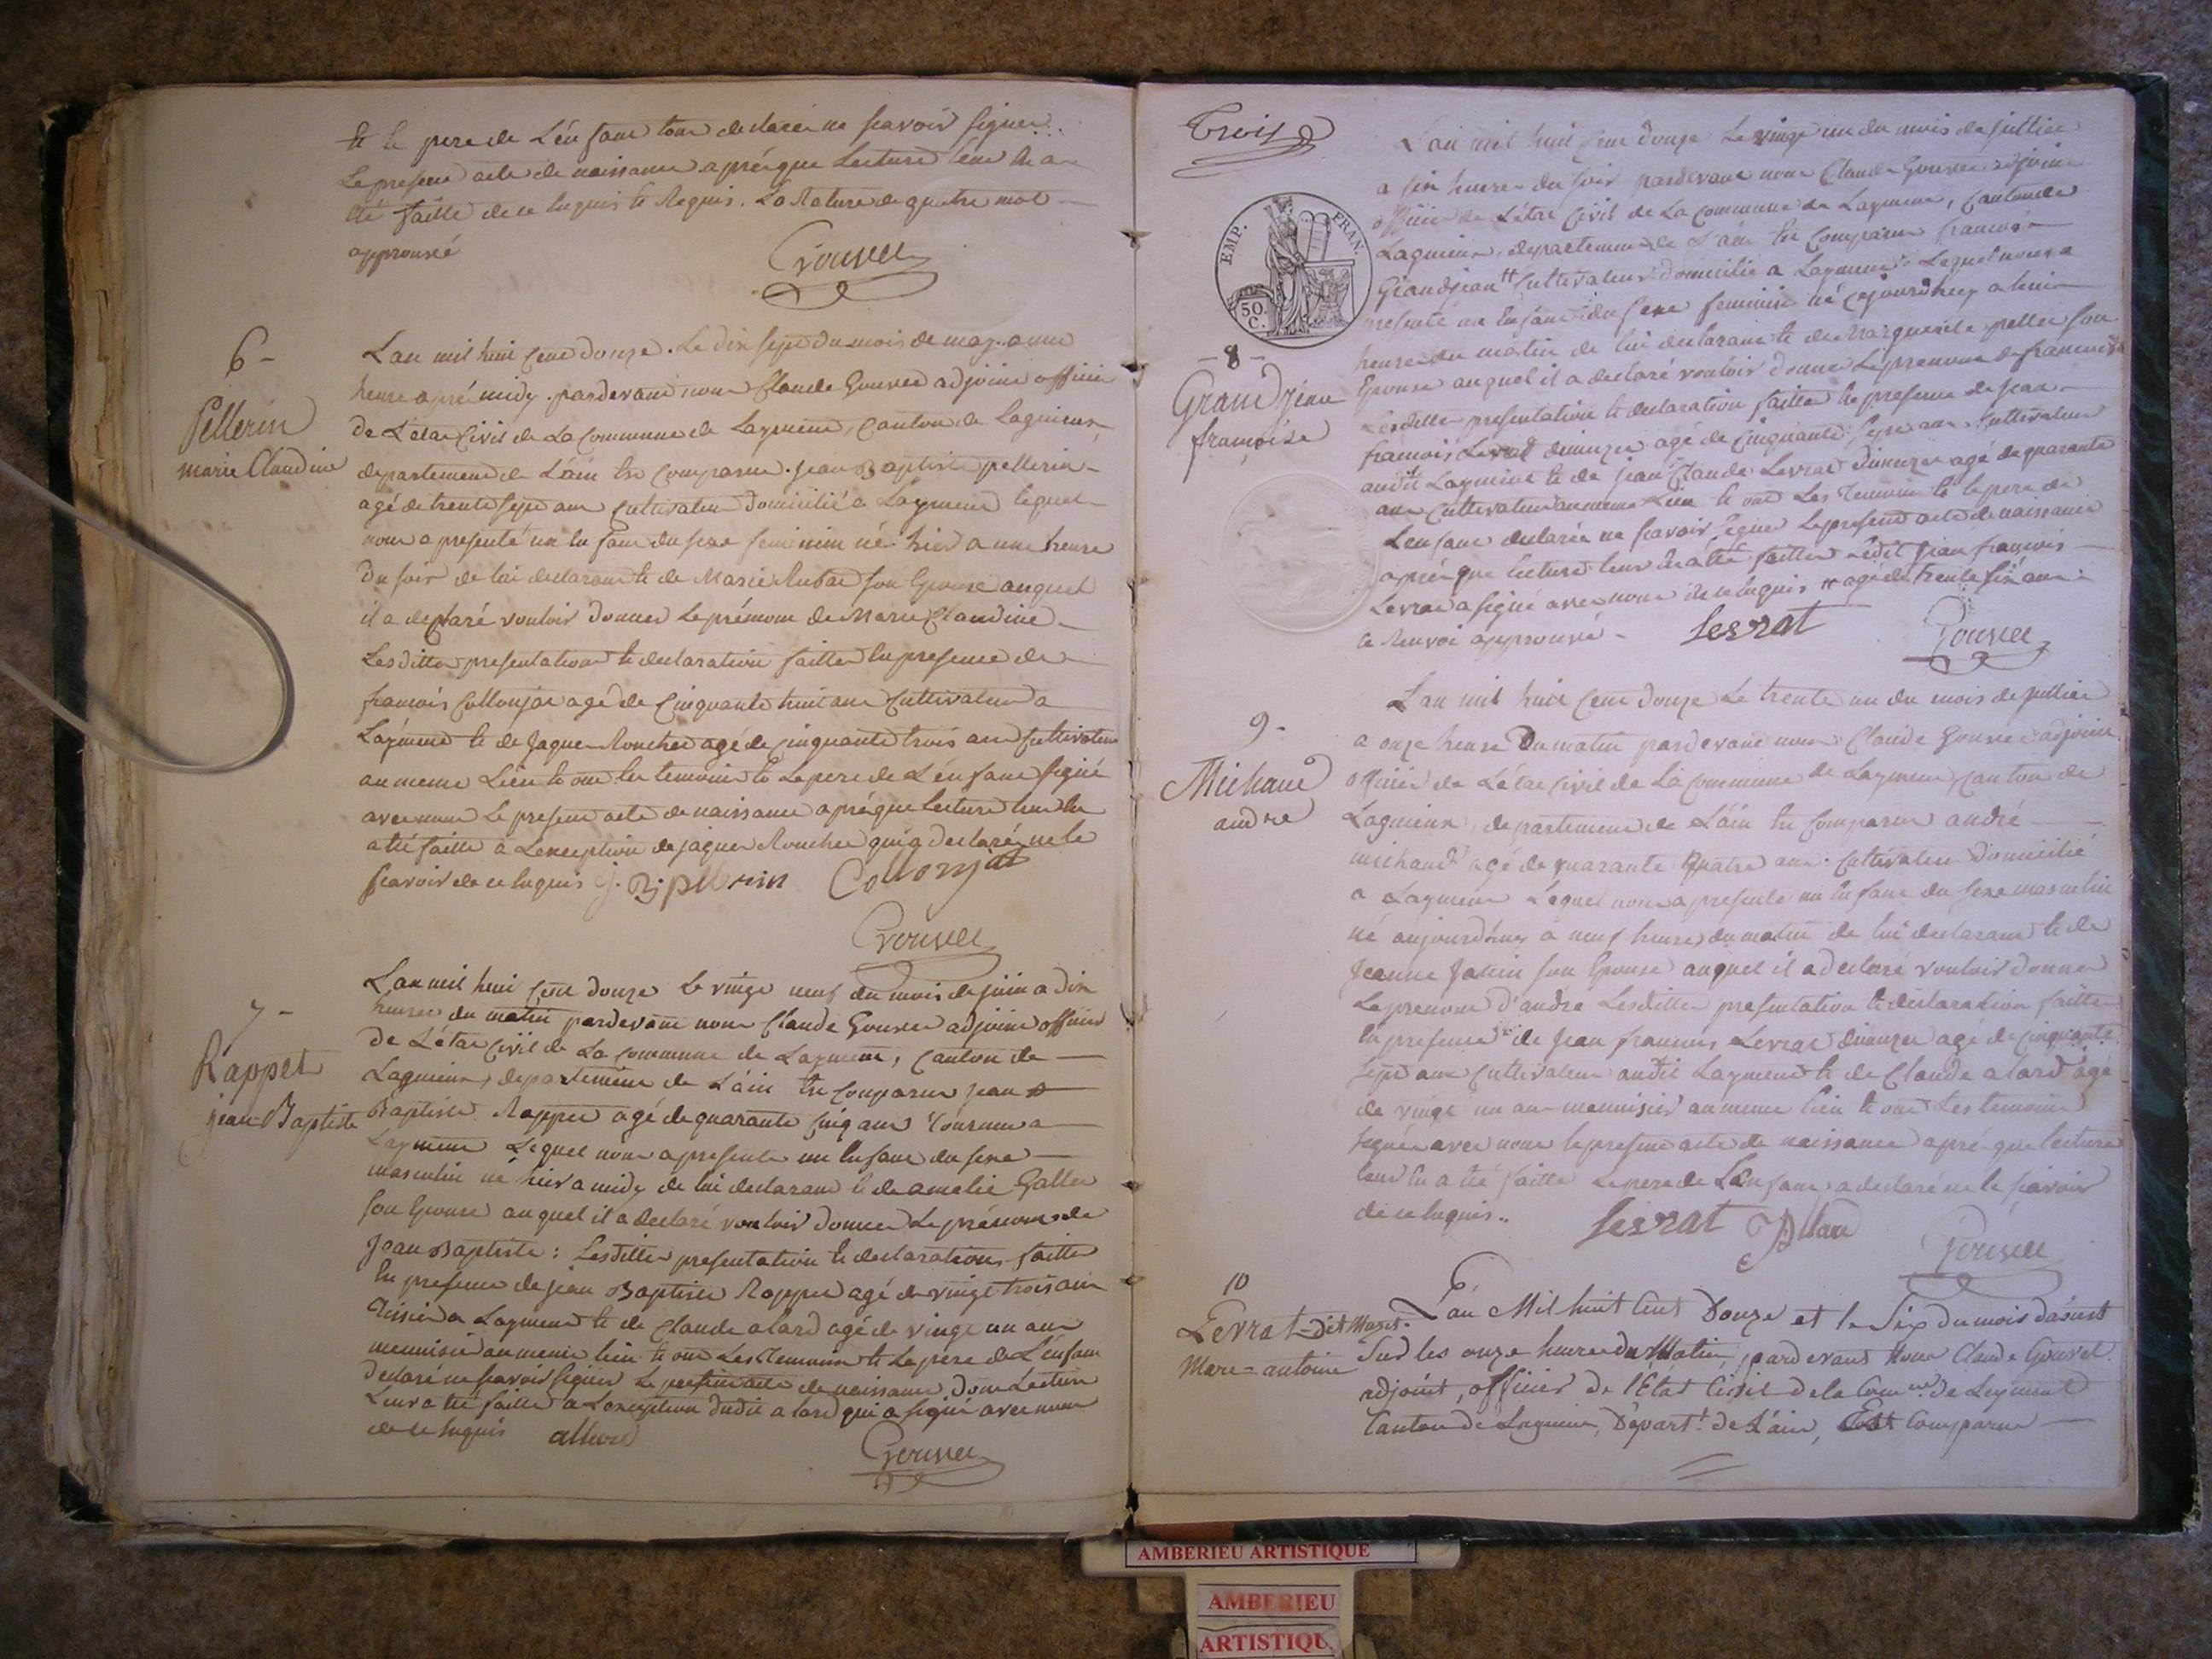 et le pere de L'enfant tous declaré ne scavoir signer
Le present acte de naissance aprés que Lecture leur en a
été faitte de ce Enquis et Requis. La Rature de quatre mot
approuvé
Gouvet
6-
Pellerin
marie Claudine
L'an mil huit cent douze. Le dix sept du mois de may a une
heure aprés midy. pardevant nous Claude Gouvet adjoint officier
de L'état Civil de La Commune de Layment, Canton de Lagnieux
departement de L'ain est comparu. jean Baptiste pellerin
agé de trente sept ans Cultivateur domicilié a Layment lequel
nous a presenté un enfant du sexe feminin né hier a une heure
du soir de lui declarant et de Marie son Epouse auquel
il a declaré vouloir donner Le prénom de Marie Claudine
Lesdittes presentation et declaration faittes en presence de
francois Collonjat agé de Cinquante huit ans Cultivateur a
Layment et de Jaques Roucher agé de cinquante trois ans Cultivateur
au meme Lieu et ont les temoins et Le pere de L'enfant signé
avec nous Le present acte de naissance aprés que lecture leur en
a été faitte à L'exception de jaques Roucher qui a declaré ne le
scavoir de ce Enquis J. B pellerin Colonjat
Gouvet
7-
Rappet
jean Baptiste
L'an mil huit cent douze Le vingt neuf du mois de juin a dix
heures du matin pardevant nous Claude Gouvet adjoint officier
de L'état Civil de La commune de Layment, Canton de
Lagnieux, departement de L'ain est comparu jean
Baptiste Rappet agé de quarante cinq ans a
Layment Lequel nous a presenté un enfant du sexe
masculin né hier a midy de lui declarant et de amelie Gallet
son Epouse auquel il a declaré vouloir donner Le prénoms de
Jean Baptiste: Lesdittes presentation et declarations faittes
en presence de jean Baptiste Rappet agé de vingt trois ans
Tissier a Layment et de Claude alard agé de vingt un ans
menuisier au meme lieu et ont Les Temoins et Le pére de L'enfant
declaré ne scavoir signer Le present acte de naissance dont Lecture
Leur a été faitte a L'exception dudit alard qui a signé avec nous
de ce Enquis allard
Gouvet
Trois
EMP. FRAN.
50 C.
- 8 -
Grandjean
françoise
L'an mil huit cent douze Le vingt un du mois de juillet
a six heures du soir pardevant nous Claude Gouvet adjoint
officier de L'état Civil de La Commune de Layment, Canton de
Lagnieux, departement de L'ain est comparu francois
Grandjean # Cultivateur domicilié a Layment Lequel nous a
presenté un Enfant du sexe feminin né cejourdhuy a huit
heures du matin de lui declarant et de Marguerite pellet son
Epouse auquel il a declaré vouloir donner Le prenom de francoise
Lesdittes presentation et declaration faittes en presence de jean
francois Levrat dimuzet agé de cinquante sept ans Cultivateur
audit Layment et de jean Claude Levrat dimuzet agé de quarante
ans Cultivateur au meme Lieu et ont Les Temoins et le pere de
L'enfant declaré ne scavoir signer Le present acte de naissance
aprés que lecture leur en a été faitte Ledit jean francois
Levrat a signé avec nous de ce Enquis # agé de trente six ans
ce Renvoi approuvé - levrat
Gouvet
9-
Michaud
andré
L'an mil huit cent douze Le trente un du mois de juillet
a onze heure Du matin pardevant nous Claude Gouvet adjoint
officier de L'état Civil de La Commune de Layment, Canton de
Lagnieux, departement de L'ain est comparu andré
michaud agé de quarante quatre ans Cultivateur Domicilié
a Layment Lequel nous a presenté un Enfant du sexe masculin
né aujourdhuy a neuf heures du matin de lui declarant et de
Jeanne Janin son Epouse auquel il a declaré vouloir donner
Le prenom d'andré Lesdittes presentation et declaration faittes
en presence de Jean francois Levrat dimuzet agé de cinquante
sept ans Cultivateur audit Layment et de Claude alard agé
de vingt un ans menuisier au meme lieu et ont Les temoins
signés avec nous le present acte de naissance aprés que lecture
leur en a été faitte Le pere de L'Enfant a declaré ne le scavoir
de ce Enquis.. levrat allard
Gouvet
10
Levrat dit Muzet
Marc=antoine
L'an Mil huit Cent Douze et le Six du mois d'aoust
Sur les onze heures du Matin, pardevant Nous Claude Gouvet
adjoint, officier de l'État Civil de la Comne de Leyment
Canton de Lagnieu, Départt de L'ain, Est Comparu
AMBERIEU ARTISTIQUE
AMBERIEU
ARTISTIQU